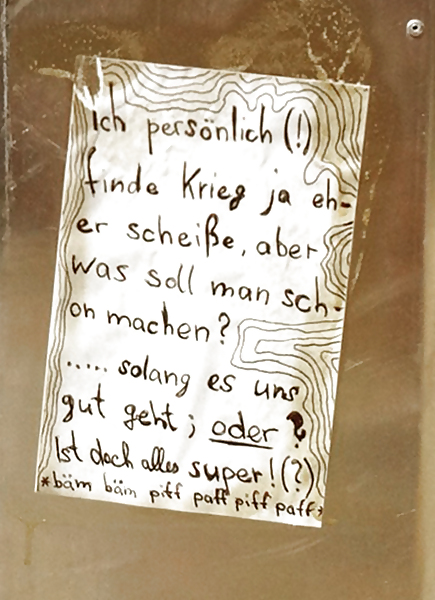 Ich persönlich (!)
finde Krieg ja eh-
er scheiße, aber
was soll man sch-
on machen?
..... solang es uns
gut geht; oder?
Ist doch alles super! (?)
*bäm bäm piff paff piff paff*